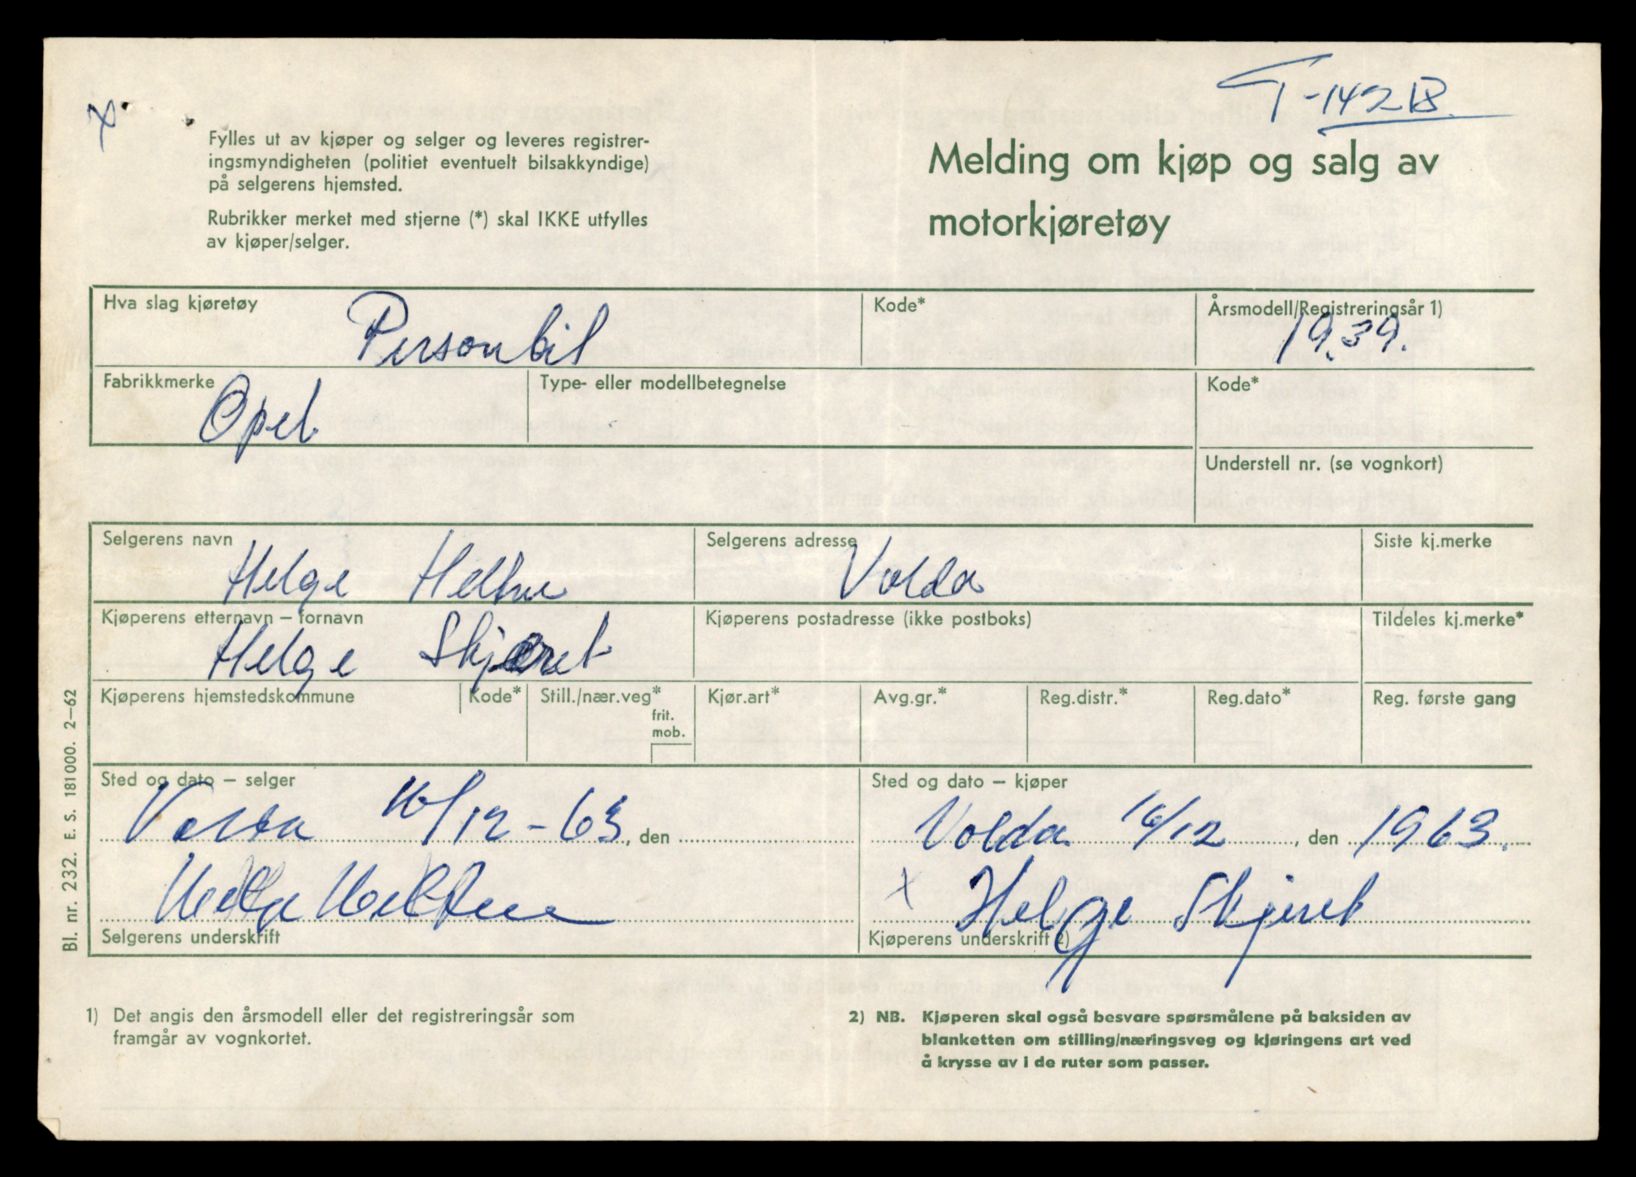 T-14218
x
Fylles ut av kjøper og selger og leveres registrer-
ingsmyndigheten (politiet eventuelt bilsakkyndige)
på selgerens hjemsted.
Rubrikker merket med stjerne (*) skal IKKE utfylles
av kjøper/selger.
Melding om kjøp og salg av
motorkjøretøy
Hva slag kjøretøy Kode* Årsmodell/Registreringsår 1)
Personbil 1939.
Fabrikkmerke Type- eller modellbetegnelse Kode*
Opel
Understell nr. (se vognkort)
Selgerens navn Selgerens adresse Siste kj.merke
Helge Volda
Kjøperens etternavn – fornavn Kjøperens postadresse (ikke postboks) Tildeles kj.merke*
Helge Skjeret
Kjøperens hjemstedskommune Kode* Still./nær.veg* Kjør.art* Avg.gr.* Reg.distr.* Reg.dato* Reg. første gang
frit.
mob.
Sted og dato – selger Sted og dato – kjøper
Volda 16/12-63, den Volda 16/12, den 1963.
x Helge Skjeret
Selgerens underskrift Kjøperens underskrift 2)
Bl. nr. 232. E. S. 181000. 2–62
1) Det angis den årsmodell eller det registreringsår som
framgår av vognkortet.
2) NB. Kjøperen skal også besvare spørsmålene på baksiden av
blanketten om stilling/næringsveg og kjøringens art ved
å krysse av i de ruter som passer.